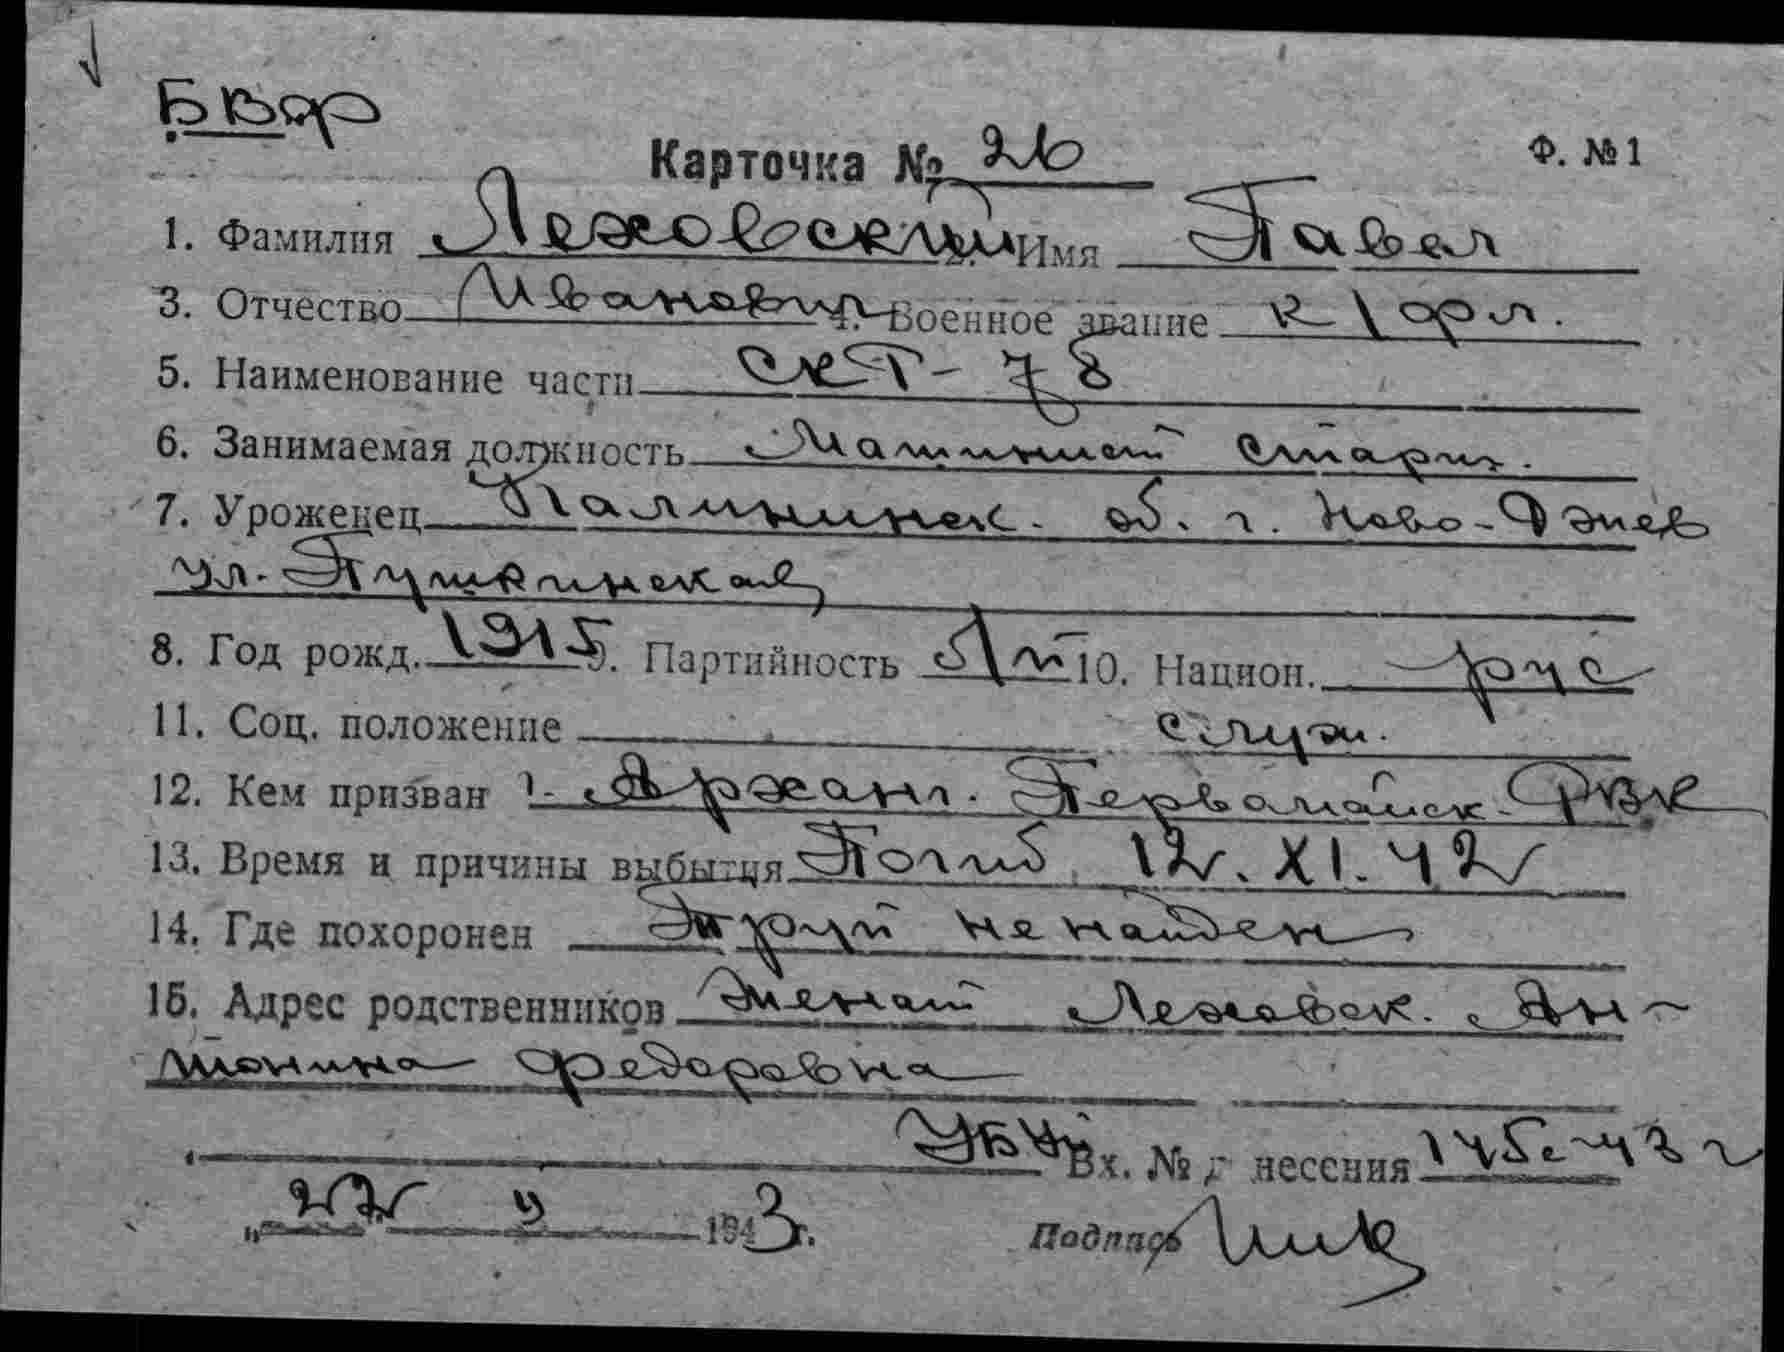 БВФ
Карточка № 26 Ф. №1
1. Фамилия Леховский 2. Имя Павел
3. Отчество Иванович 4. Военное звание к/фл.
5. Наименование части СКР-78
6. Занимаемая должность Машинист старш.
7. Уроженец Калининск. об. г. Ново-Ржев
ул. Пушкинская
8. Год рожд. 1915 9. Партийность 10. Национ. рус
11. Соц. положение служ.
12. Кем призван г. Арханг. Первомайск. РВК
13. Время и причины выбытия Погиб 12.XI.42
14. Где похоронен Труп не найден
15. Адрес родственников Женат Леховск. Ан-
тонина Федоровна
Вх. № донесения 145с-43г
„22" 1943г. Подпись